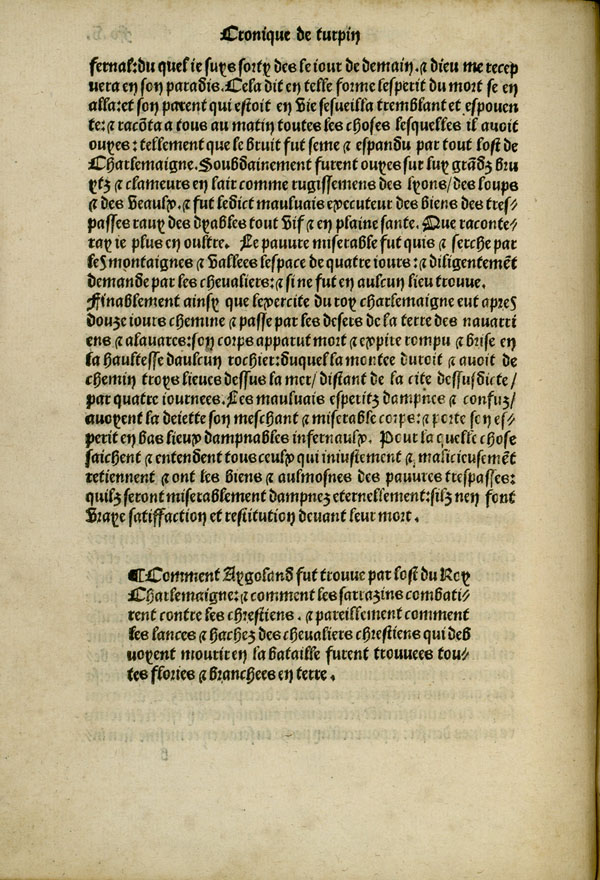 Cronique de turpin
fernal: du quel ie suys sorty des le iour de demain. & dieu me recep
uera en son paradis. Cela dit en telle forme lesperit du mort se en
alla: et son parent qui estoit en vie sesueilla tremblant et espouen
te: & racõta a tous au matin toutes les choses lesquelles il auoit
ouyes: tellement que le bruit fut seme & espandu par tout lost de
Charlemaigne. Soubdainement furent ouyes sur luy grãdz bru
ytz & clameurs en lair comme rugissemens des lyons/ des loups
& des veaulx. & fut ledict mauluais executeur des biens des tres⸗
passes rauy des dyables tout vif & en plaine sante. Que raconte⸗
ray ie plus en oultre. Le pauure miserable fut quis & serche par
les montaignes & vallees lespace de quatre iours: & diligentemẽt
demande par les cheualiers: & si ne fut en aulcun lieu trouue.
Finablement ainsy que lexercite du roy charlemaigne eut apres
douze iours chemine & passe par les desers de la terre des nauarri
ens & alauares: son corps apparut mort & expire rompu & brise en
la haultesse daulcun rochier: duquel la montee duroit & auoit de
chemin troys lieues dessus la mer/ distant de la cite dessusdicte/
par quatre iournees. Les mauluais esperitz dampnes & confuz/
auoyent la deiette son meschant & miserable corps: & porte son es⸗
perit en bas lieux dampnables infernaulx. Pour la quelle chose
saichent & entendent tous ceulx qui iniustement & malicieusemẽt
retiennent & ont les biens & aulmosnes des pauures trespasses:
quilz seront miserablement dampnez eternellement: silz nen font
vraye satiffaction et restitution deuant leur mort.
¶ Comment Aygoland fut trouue par lost du Roy
Charlemaigne: & comment les sarrazins combati⸗
rent contre les chrestiens. & pareillement comment
les lances & hachez des cheualiers chrestiens qui deb
uoyent mourir en la bataille furent trouuees tou⸗
tes flories & branchees en terre.